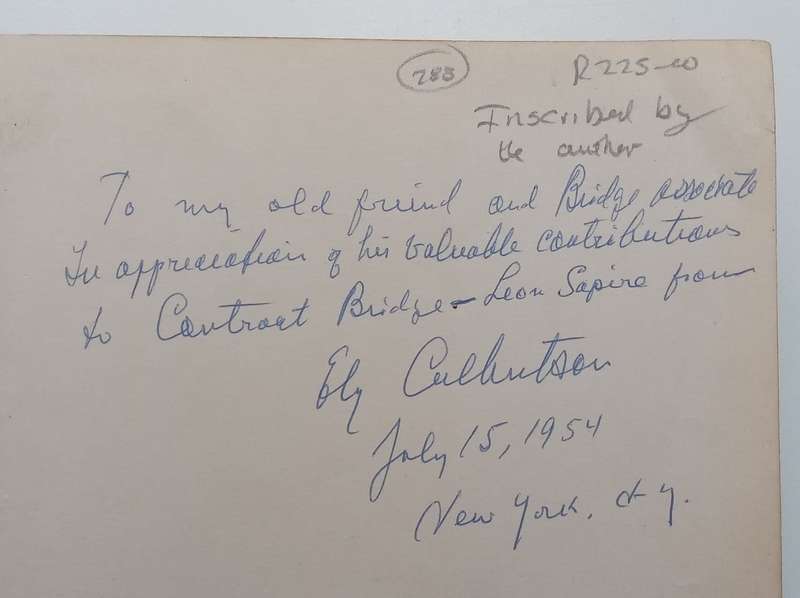 283
R225-00
Inscribed by
the author
To my old friend and Bridge associate
In appreciation of his valuable contributions
to Contract Bridge - Leon Sapire from
Ely Culbertson
July 15, 1954
New York, N.Y.